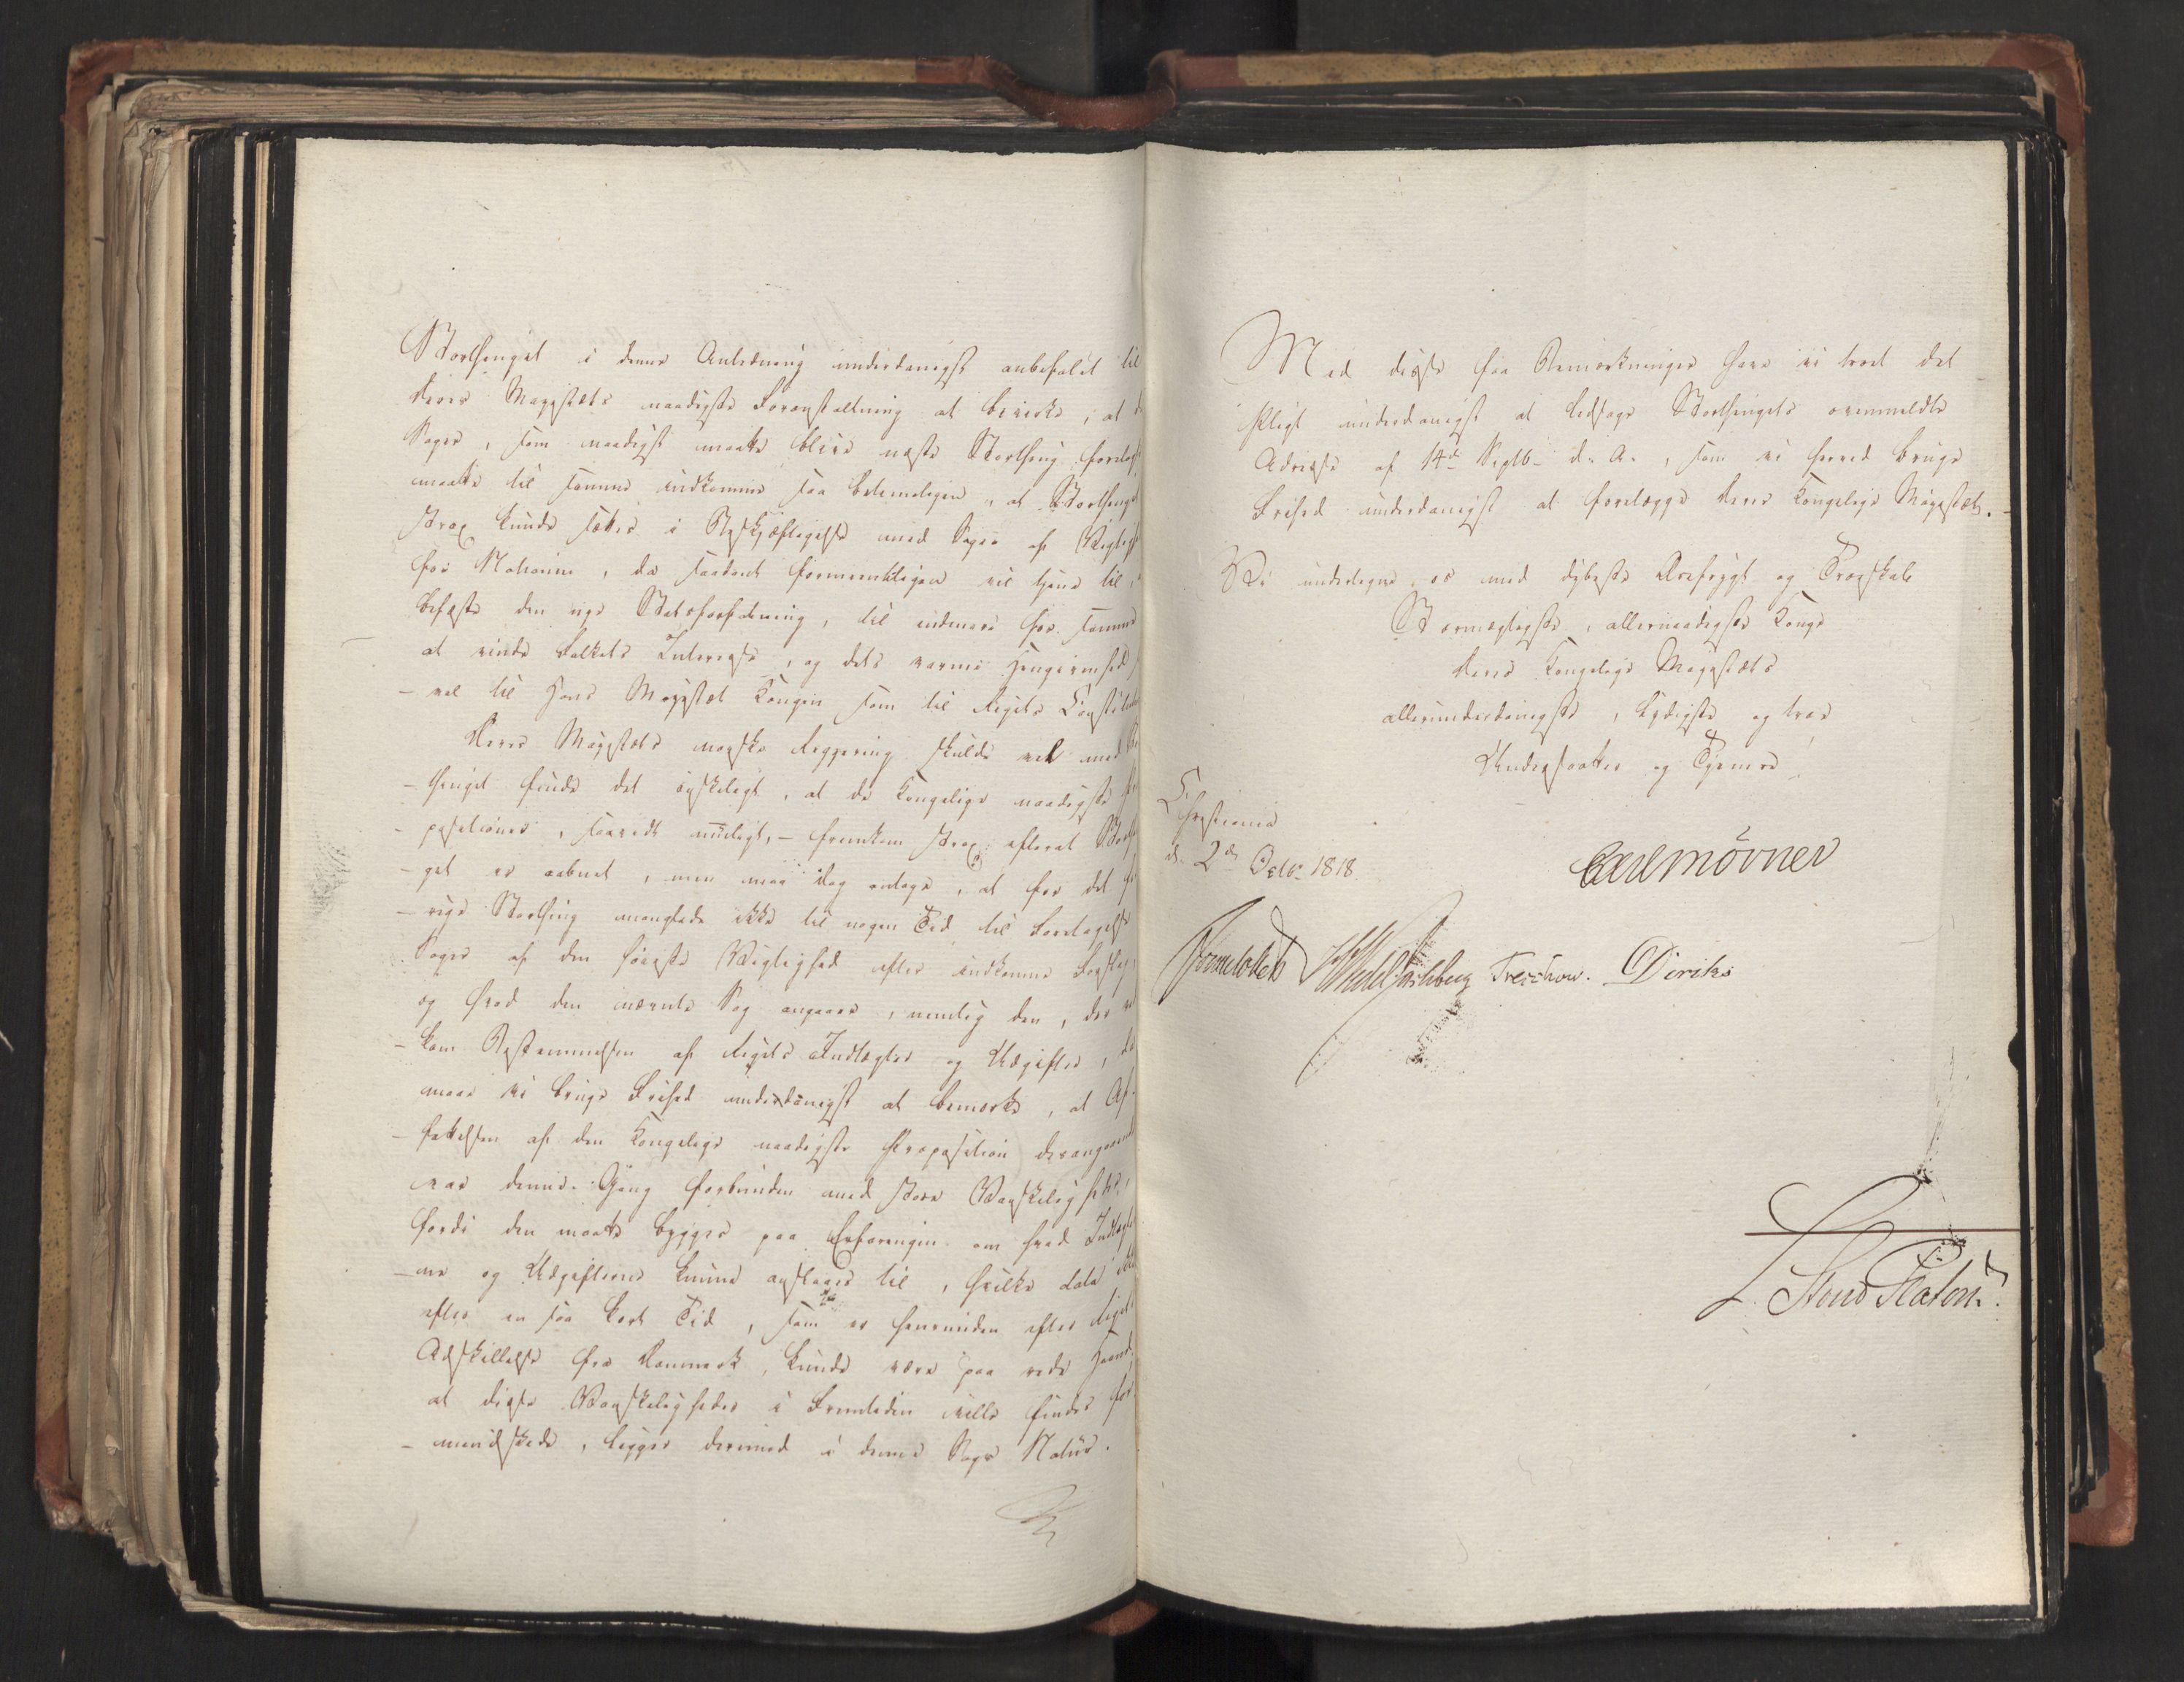 Storthinget i denne Anledning underdanigst anbefalet til
Deres Majestæts naadigste Foranstaltning at bevirke, at de
Sager, som naadigst maatte blive næste Storthing forelagt
maatte til samme indkomme saa betimeligen, at Storthinget
strax kunde sættes i Beskjæftigelse med Sager af Vigtighed
for Nationen, da saadant formeentligen vil tjene til, at
befæste den nye Statsforfatning, til endmere for samme
at vinde Folkets Interesse, og dets varme Hengivenhed
- vel til Hans Majestæt Kongen som til Rigets Constitution
Deres Majestæts norske Regjering skulde vel med Stor
- thinget finde det ønskeligt, at de Kongelige naadigste Pro
- positioner, saavidt mueligt, - fremkom strax efterat Storthin
- get er aabnet, men maa dog antage, at for det for
- rige Storthing manglede ikke til nogen Tid til Foretagelse
Sager af den høieste Vigtighed efter indkomne Forslag,
og hvad den nævnte Sag angaaer, nemlig den, der ved
- kom Bestemmelsen af Rigets Indtægter og Udgifter, da
maae vi bruge Frihed underdanigst at bemærke, at Af-
- fattelsen af den Kongelige naadigste Proposition derangaaende
var denne Gang forbunden med store Vanskeligheder,
fordi den maatte bygges paa Erfaringen om hvad Indtægter
- ne og Udgifterne kunne anslaaes til, hvilke data ikke
efter en saa kort Tid, som er henrunden efter Rigets
Adskillelse fra Danmark, kunde være paa rede Haand.
at disse Vanskeligheder i Fremtiden ville findes for
- mindskede, ligger derimod i denne Sags Natur.
Med disse faa Bemærkninger have vi troet det
Pligt underdanigst at ledsage Storthingets ovenmeldte
Adresse af 14de Septb- d. A., som vi herved bruge
Frihed underdanigst at forelægge Deres Kongelige Majestæt. -
Vi undertegne os med dybeste Ærefrygt og Troeskab
Stormægtigste, allernaadigste Konge
Deres Kongelige Majestæts
allerunderdanigste, lydigste og troe
Undersaatter og Tjenere
Christiania
d. 2de Octbr 1818.
Carl Mörner
Sommerhielm HWedelJarlsberg Treschow. Diriks
L. Stoud Platou.